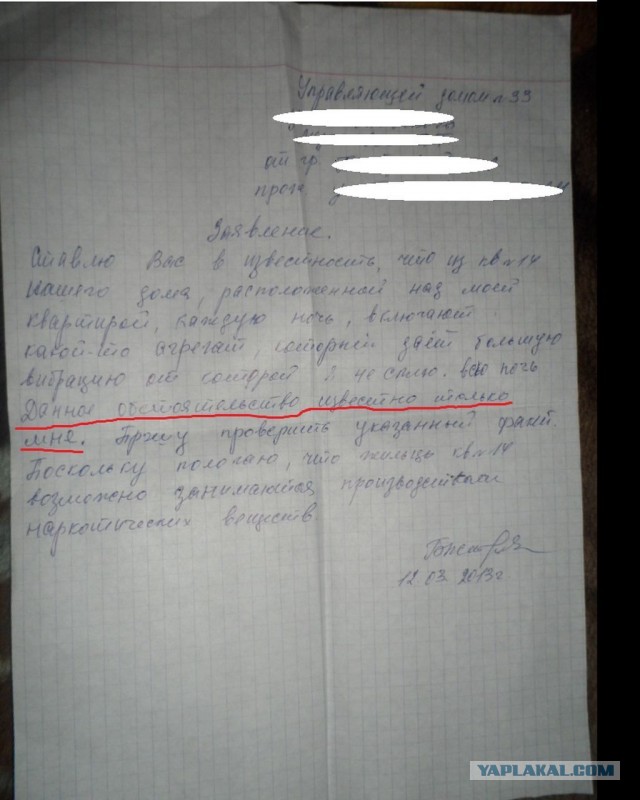 Управляющей домом №33
от гр.
прож
Заявление.
Ставлю Вас в известность, что из кв №14
нашего дома, расположенной над моей
квартирой, каждую ночь, включают
какой-то агрегат, который даёт большую
вибрацию от которой я не сплю. всю ночь
Данное обстоятельство известно только
мне. Прошу проверить указанный факт.
Поскольку полагаю, что жильцы кв №14
возможно занимаются производством
наркотических веществ.
12.03.2013г.
YAPLAKAL.COM